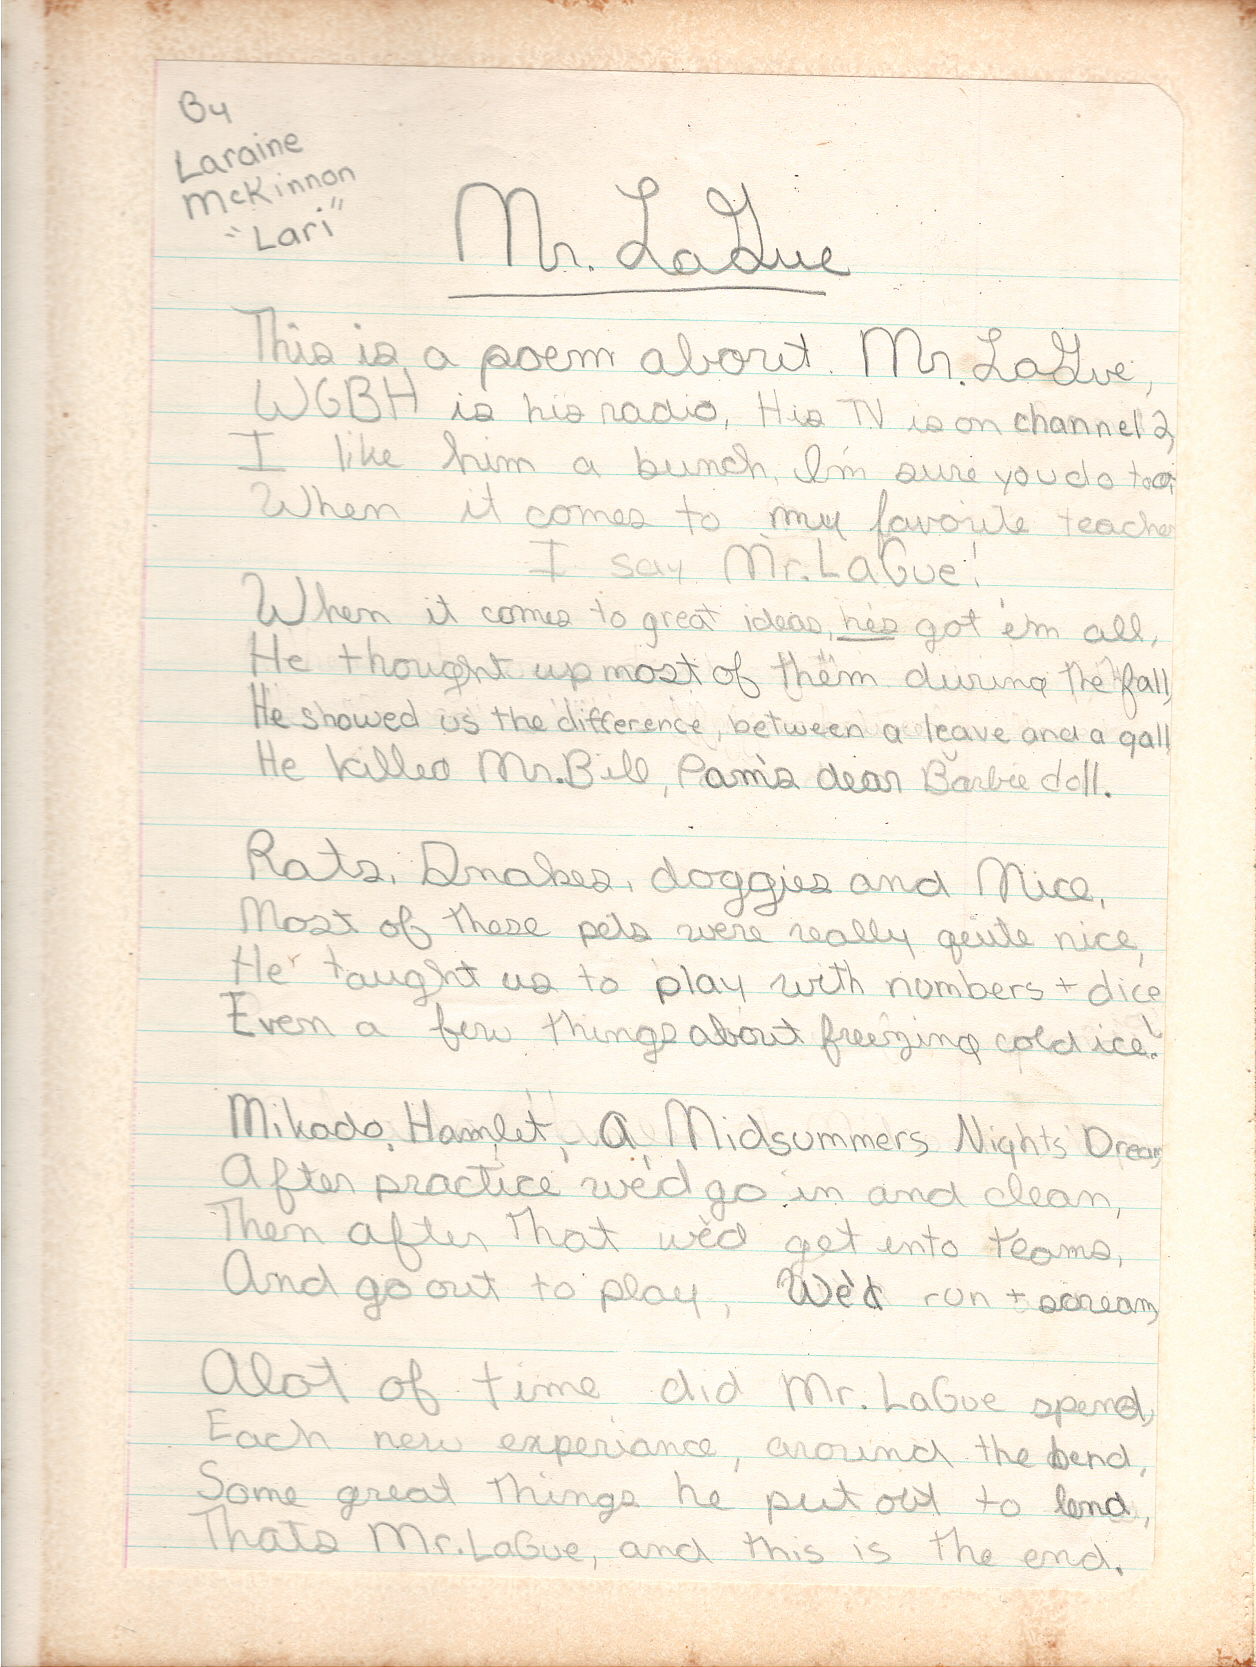 By
Laraine
McKinnon
"Lari"
Mr. LaGue
This is a poem about Mr. LaGue,
WGBH is his radio, His TV is on channel 2,
I like him a bunch, I'm sure you do too,
When it comes to my favorite teacher
I say Mr. LaGue!
When it comes to great ideas, hes got em all,
He thought up most of them during the fall,
He showed us the difference, between a leave and a gall
He killed Mr. Bill, Pam's dear Barbie doll.
Rats, Snakes, doggies and Mice,
Most of these pets were really quite nice,
He taught us to play with numbers + dice
Even a few things about freezing cold ice!
Mikado, Hamlet, A Midsummers Nights Dream
After practice we'd go in and clean,
Then after that we'd get into teams,
And go out to play, We'd run + scream,
Alot of time did Mr. LaGue spend,
Each new experiance, around the bend,
Some great things he put out to lend,
Thats Mr. LaGue, and this is the end.